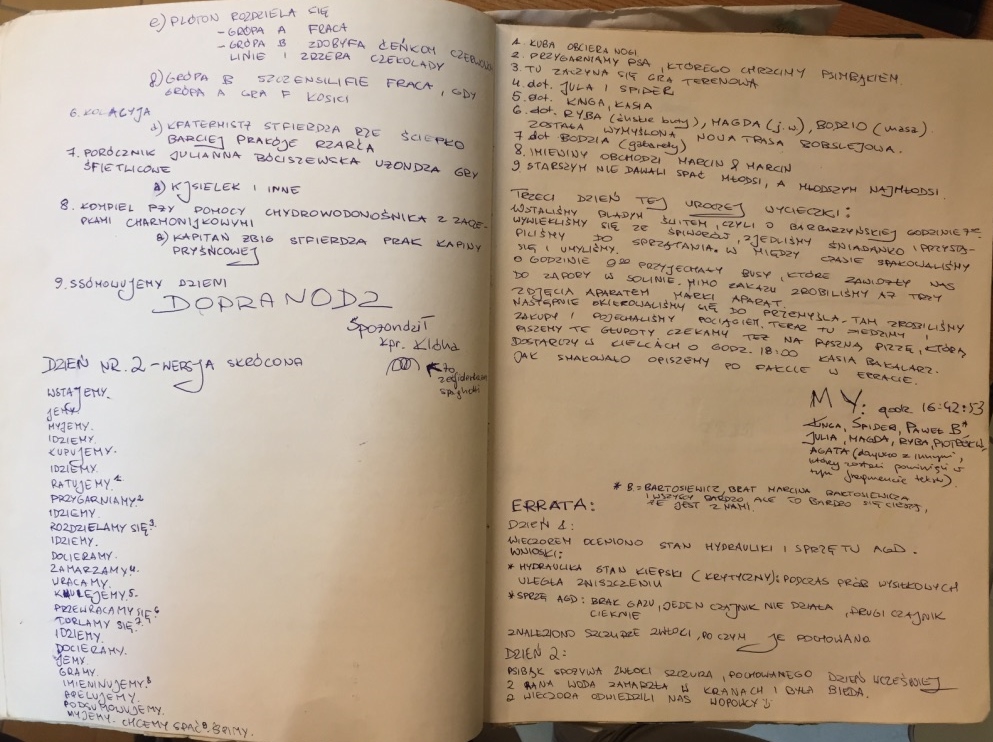 e) PLOTON ROZDZIELA SIĘ
- GRÓPA A FRACA
- GRÓPA B ZDOBYFA ĆEŃKOM CZERWONOM
LINIE I ZRZERA CZEKOLADY
f) GRÓPA B SZCZENSILIFIE FRACA, GDY
GRÓPA A GRA F KOSICI
6. KOLACYJA
a) KFATERMISTZ STFIERDZA RZE ŚCIEPŁO
BARCIEJ PRAKÓJE RZARŁA
7. PORÓCZNIK JULIANNA BÓCISZEWSKA UZONDZA GRY
ŚFIETLICOWE
a) KJSIELEK I INNE
8. KOMPIEL PZY POMOCY CHYDROWODONOŚNIKA Z ZACZE-
PKAMI CHARMONIJKOWYMI
a) KAPITAN ZBIG STFIERDZA PRAK KAPINY
PRYŚNCOWEJ
9. SSÓMOWUJEMY DZIENI
DOPRANODZ
Spozondził
kpr. Klóha
← to
spaghetti
DZIEŃ NR. 2 - WERSJA SKRÓCONA
WSTAJEMY.
JEMY.
MYJEMY.
IDZIEMY.
KUPUJEMY.
IDZIEMY.
RATUJEMY.1
PRZYGARNIAMY2
IDZIEMY.
ROZDZIELAMY SIĘ3.
IDZIEMY.
DOCIERAMY.
ZAMARZAMY4.
WRACAMY.
KULEJEMY5.
PRZEWRACAMY SIĘ6
TORLAMY SIĘ7.
IDZIEMY.
DOCIERAMY.
JEMY.
GRAMY.
IMIENINUJEMY.8
APELUJEMY.
PODSUMOWUJEMY.
MYJEMY. CHCEMY SPAĆ9. ŚPIMY.
1. KUBA OBCIERA NOGI
2. PRZYGARNIAMY PSA, KTÓREGO CHRZCIMY PSIMBĄKIEM.
3. TU ZACZYNA SIĘ GRA TERENOWA
4. dot. JULA I SPIDER
5. dot. KINGA, KASIA
6. dot. RYBA (śliskie buty), MAGDA (j.w), BODZIO (masa).
ZOSTAŁA WYMYŚLONA NOWA TRASA BOBSLEJOWA.
7. dot BODZIA (gabaryty)
8. IMIENINY OBCHODZI MARCIN & MARCIN
9. STARSZYM NIE DAWALI SPAĆ MŁODSI, A MŁODSZYM NAJMŁODSI.
TRZECI DZIEŃ TEJ UROCZEJ WYCIECZKI:
WSTALIŚMY BLADYM ŚWITEM, CZYLI O BARBARZYŃSKIEJ GODZINIE 7
WYWLEKLIŚMY SIĘ ZE ŚPIWORÓW, ZJEDLIŚMY ŚNIADANKO I PRZYSTĄ-
PILIŚMY DO SPRZĄTANIA. W MIĘDZY CZASIE SPAKOWALIŚMY
SIĘ I UMYLIŚMY.
O GODZINIE 9 PRZYJECHAŁY BUSY, KTÓRE ZAWIOZŁY NAS
DO ZAPORY W SOLINIE. MIMO ZAKAZU ZROBILIŚMY AŻ TRZY
ZDJĘCIA APARATEM MARKI APARAT.
NASTĘPNIE SKIEROWALIŚMY SIĘ DO PRZEMYŚLA. TAM ZROBILIŚMY
ZAKUPY I POJECHALIŚMY POCIĄGIEM. TERAZ TU SIEDZIMY I
PISZEMY TE GŁUPOTY CZEKAMY TEŻ NA PYSZNĄ PIZZĘ, KTÓRĄ
DOSTARCZY W KIELCACH O GODZ. 18:00 KASIA BAKALARZ.
JAK SMAKOWAŁO OPISZEMY PO FAKCIE W ERRACIE.
MY: godz 16:42:53
KINGA, SPIDER, PAWEŁ B*
JULIA, MAGDA, RYBA, PIOTREK W,
AGATA (
którzy zostali pominięci w
tym fragmencie tekstu).
* B = BARTOSIEWICZ, BRAT MARCINA BARTOSIEWICZA
I WSZYSCY BARDZO, ALE TO BARDZO SIĘ CIESZĄ,
ŻE JEST Z NAMI.
ERRATA:
DZIEŃ 1:
WIECZOREM OCENIONO STAN HYDRAULIKI I SPRZĘTU AGD.
WNIOSKI:
* HYDRAULIKA STAN KIEPSKI (KRYTYCZNY): PODCZAS PRÓB WYSIŁKOWYCH
ULEGŁA ZNISZCZENIU
* SPRZĘT AGD: BRAK GAZU, JEDEN CZAJNIK NIE DZIAŁA, DRUGI CZAJNIK
CIEKNIE
ZNALEZIONO SZCZURZE ZWŁOKI, PO CZYM JE POCHOWANO
DZIEŃ 2:
PSIBĄK SPOŻYWA ZWŁOKI SZCZURA, POCHOWANEGO DZIEŃ WCZEŚNIEJ
Z RANA WODA ZAMARZŁA W KRANACH I BYŁA BIEDA.
Z WIECZORA ODWIEDZILI NAS WOPOWCY